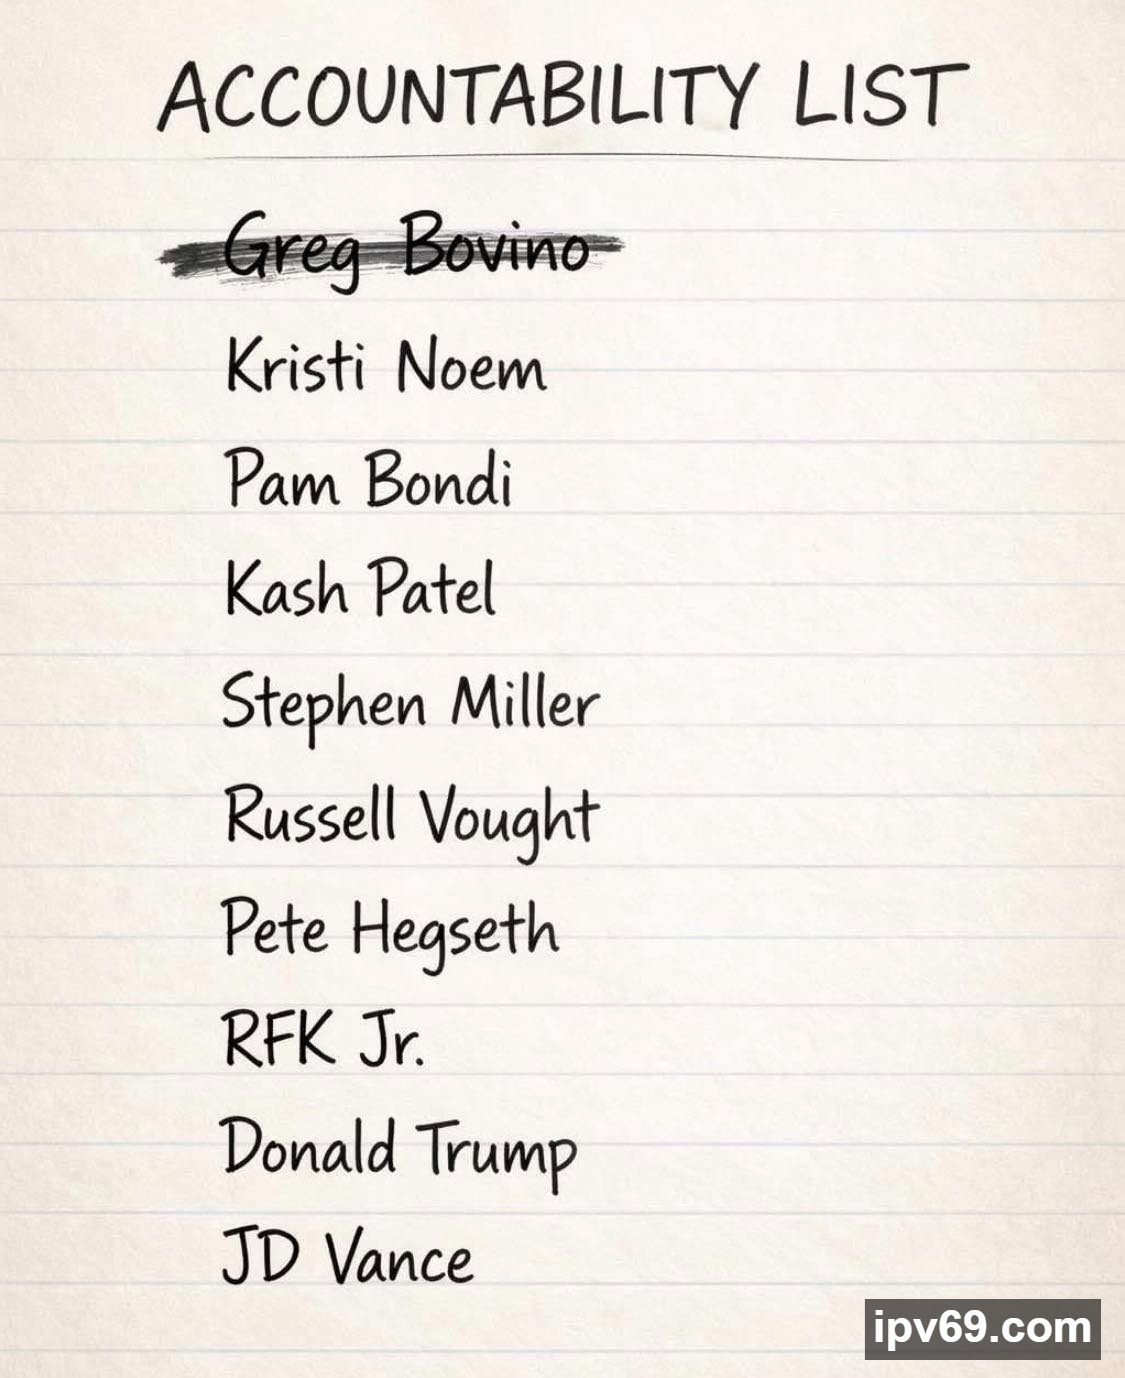 ACCOUNTABILITY LIST
Greg Bovino
Kristi Noem
Pam Bondi
Kash Patel
Stephen Miller
Russell Vought
Pete Hegseth
RFK Jr.
Donald Trump
JD Vance
ipv69.com